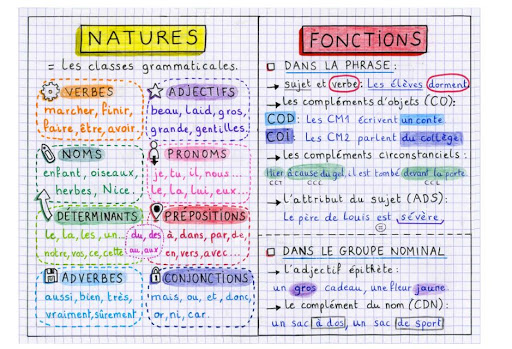 NATURES
= Les classes grammaticales.
VERBES
marcher, finir,
faire, être, avoir.
ADJECTIFS
beau, laid, gros,
grande, gentilles.
NOMS
enfant, oiseaux,
herbes, Nice..
PRONOMS
je, tu, il, nous...
le, la, lui, eux...
DÉTERMINANTS
le, la, les, un... du, des
notre, vos, ce, cette au, aux
PRÉPOSITIONS
à, dans, par, de
en, vers, avec...
ADVERBES
aussi, bien, très,
vraiment, sûrement
CONJONCTIONS
mais, ou, et, donc,
or, ni, car.
FONCTIONS
DANS LA PHRASE:
→ sujet et verbe: Les élèves dorment.
→ les compléments d'objets (CO):
COD: Les CM1 écrivent un conte
COI: Les CM2 parlent du collège
→ les compléments circonstanciels:
Hier à cause du gel, il est tombé devant la porte.
CCT CCC CCL
→ L'attribut du sujet (ADS):
Le père de Louis est sévère.
=
DANS LE GROUPE NOMINAL
→ L'adjectif épithète:
un gros cadeau, une fleur jaune.
→ Le complément du nom (CDN):
un sac à dos, un sac de sport